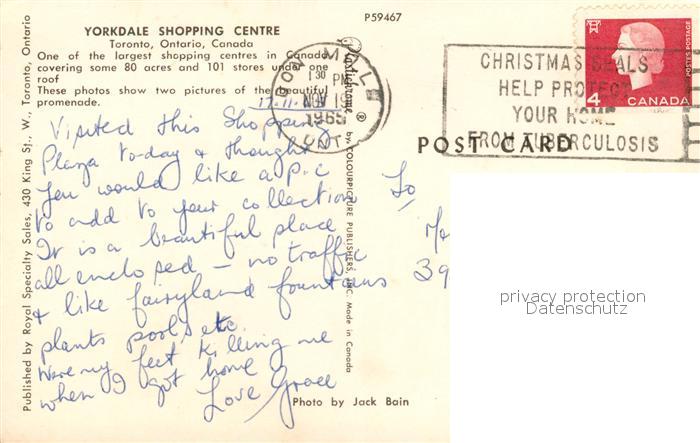 P59467
YORKDALE SHOPPING CENTRE
Toronto, Ontario, Canada
One of the largest shopping centres in Canada
covering some 80 acres and 101 stores under one
roof
These photos show two pictures of the beautiful
promenade.
17.11.
Visited this Shopping
Plaza to-day & thought
you would like a p.c
to add to your collection
It is a beautiful place
all enclosed — no traffic
& like fairyland fountains
plants pools etc.
Were my feet killing me
when I got home
Love Grace
Photo by Jack Bain
Published by Royal Specialty Sales, 430 King St., W., Toronto, Ontario
Plastichrome ® by COLOURPICTURE PUBLISHERS, INC. Made in Canada
DON MILLS
1 30
PM
NOV 17
1965
ONT
CHRISTMAS SEALS
HELP PROTECT
YOUR HOME
FROM TUBERCULOSIS
4
CANADA
POSTES POSTAGE
POST CARD
To
39
privacy protection
Datenschutz